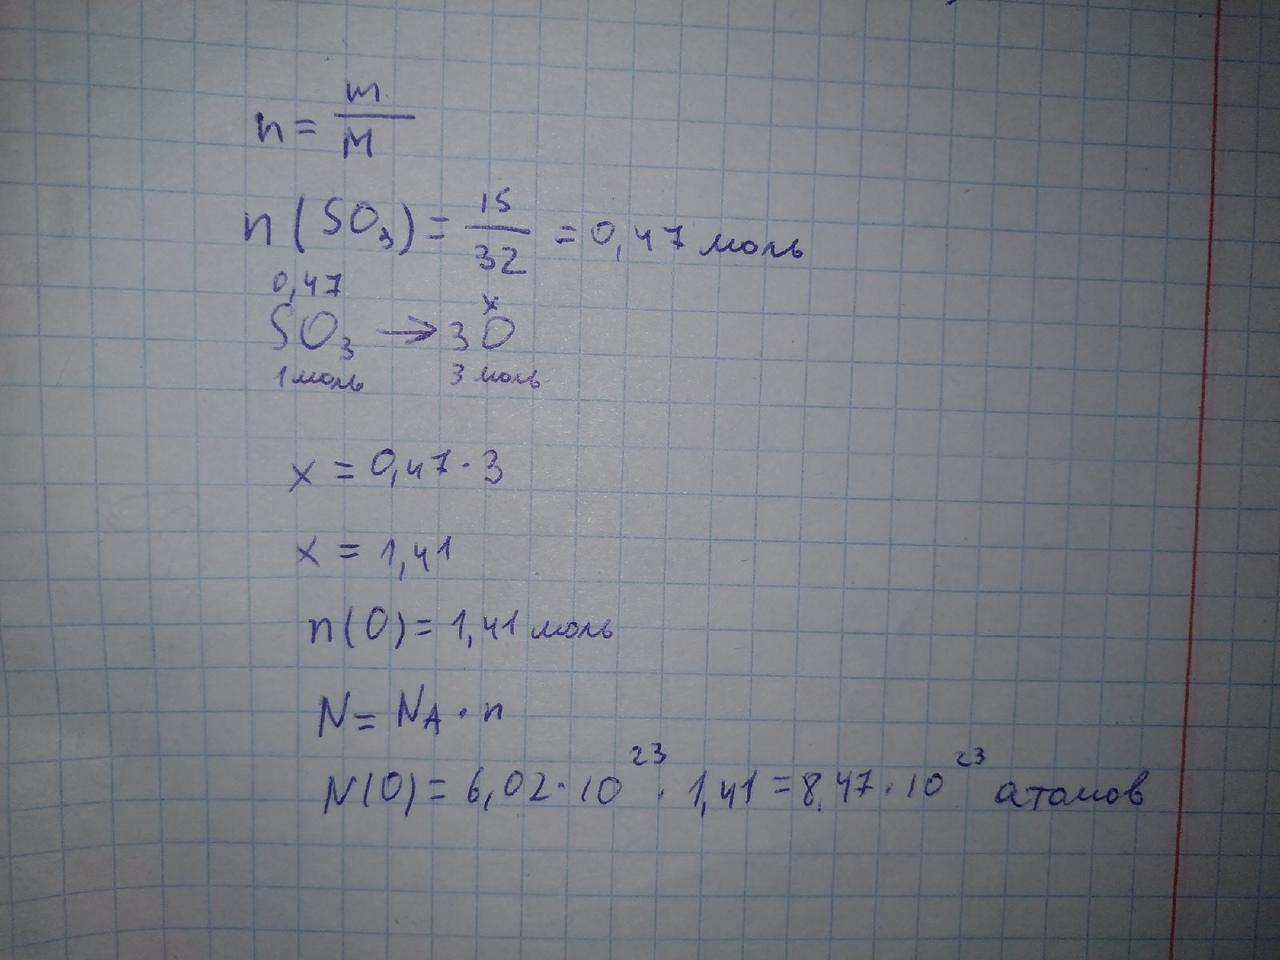 n = m/M
n (SO₃) = 15/32 = 0,47 моль
0,47 x
SO₃ → 3O
1 моль 3 моль
x = 0,47 · 3
x = 1,41
n(O) = 1,41 моль
N = N_A · n
N(O) = 6,02 · 10²³ · 1,41 = 8,47 · 10²³ атомов